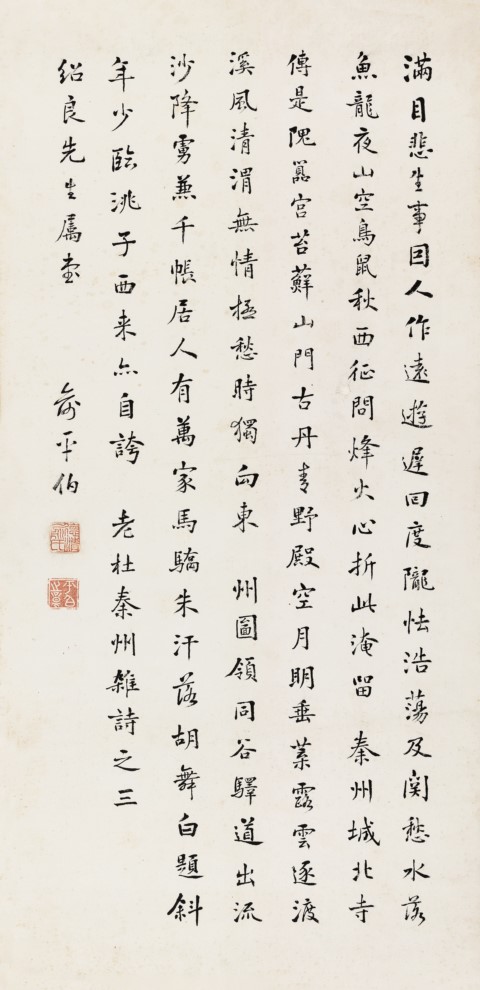 滿目悲生事因人作遠遊遲回度隴怯浩蕩及関愁水落
魚龍夜山空鳥鼠秋西征問烽火心折此淹留 秦州城北寺
傳是隗囂宮苔蘚山門古丹青野殿空月明垂葉露雲逐渡
溪風清渭無情極愁時獨向東 州圖領同谷驛道出流
沙降虜兼千帳居人有萬家馬驕朱汗落胡舞白題斜
年少臨洮子西来亦自誇 老杜秦州雜詩之三
紹良先生属書
俞平伯